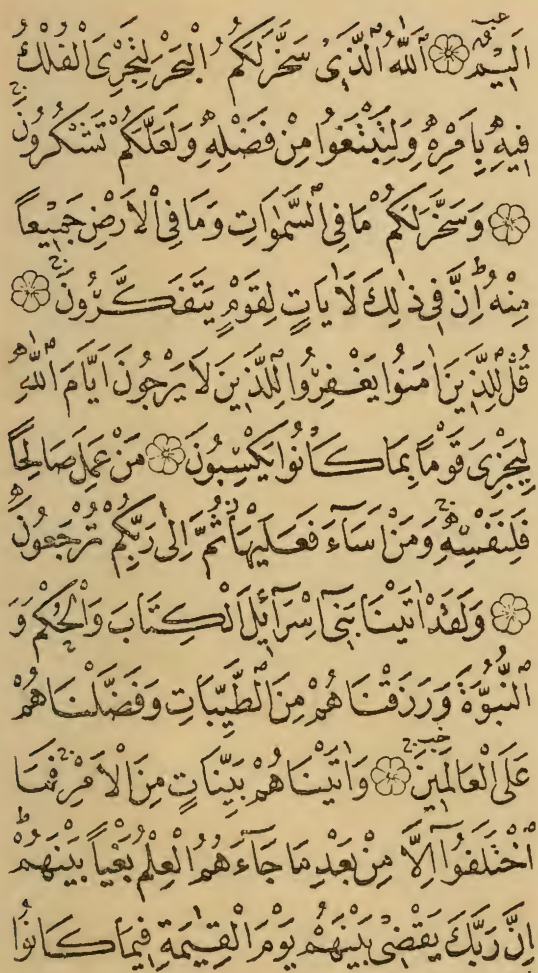 اَلِيمٌ ۝ اَللّٰهُ الَّذِى سَخَّرَ لَكُمُ الْبَحْرَ لِتَجْرِىَ الْفُلْكُ
فِيهِ بِاَمْرِهِ وَلِتَبْتَغُوا مِنْ فَضْلِهِ وَلَعَلَّكُمْ تَشْكُرُونَ
۝ وَسَخَّرَ لَكُمْ مَا فِى السَّمٰوَاتِ وَمَا فِى الْاَرْضِ جَمِيعاً
مِنْهُ اِنَّ فِى ذٰلِكَ لَاٰيَاتٍ لِقَوْمٍ يَتَفَكَّرُونَ ۝
قُلْ لِلَّذِينَ اٰمَنُوا يَغْفِرُوا لِلَّذِينَ لَا يَرْجُونَ اَيَّامَ اللّٰهِ
لِيَجْزِىَ قَوْماً بِمَا كَانُوا يَكْسِبُونَ ۝ مَنْ عَمِلَ صَالِحاً
فَلِنَفْسِهِ وَمَنْ اَسَآءَ فَعَلَيْهَا ثُمَّ اِلٰى رَبِّكُمْ تُرْجَعُونَ
۝ وَلَقَدْ اٰتَيْنَا بَنِىٓ اِسْرَآئِلَ الْكِتَابَ وَالْحُكْمَ وَ
النُّبُوَّةَ وَرَزَقْنَاهُمْ مِنَ الطَّيِّبَاتِ وَفَضَّلْنَاهُمْ
عَلَى الْعَالَمِينَ ۝ وَاٰتَيْنَاهُمْ بَيِّنَاتٍ مِنَ الْاَمْرِ فَمَا
اخْتَلَفُوٓا اِلَّا مِنْ بَعْدِ مَا جَآءَهُمُ الْعِلْمُ بَغْياً بَيْنَهُمْ
اِنَّ رَبَّكَ يَقْضِى بَيْنَهُمْ يَوْمَ الْقِيٰمَةِ فِيمَا كَانُوا